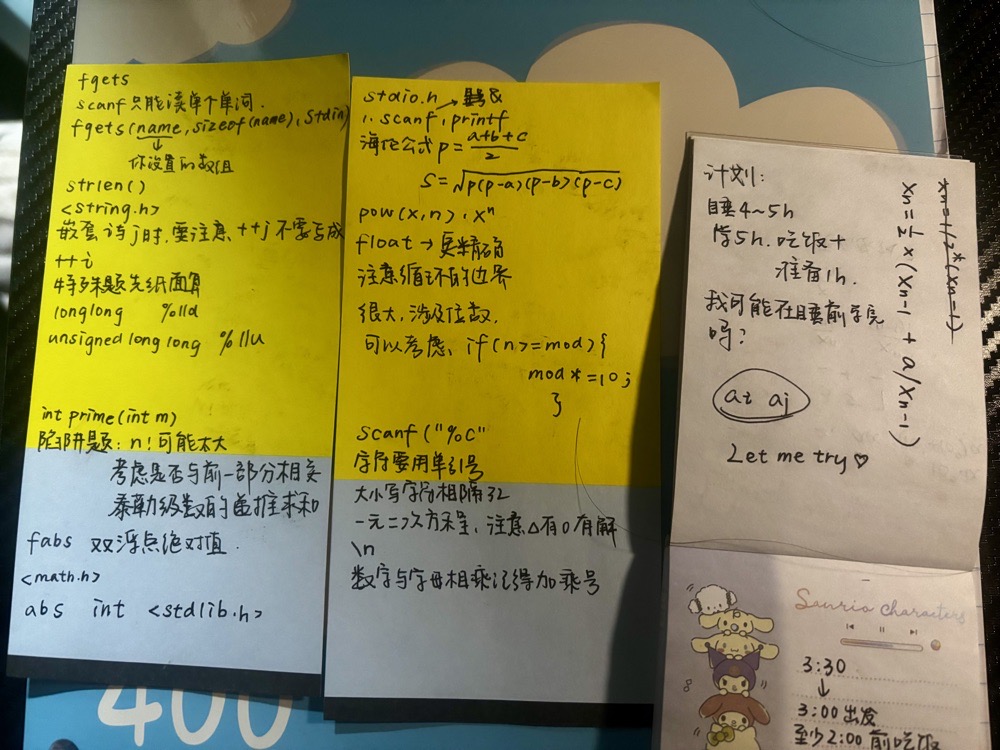 fgets
scanf只能读单个单词.
fgets(name,sizeof(name),stdin)
↓
你设置的数组
strlen()
<string.h>
嵌套诗j时,要注意,++j不要写成
++i
特殊题先纸面算
longlong %lld
unsigned long long %llu
int prime(int m)
陷阱题:n!可能太大
考虑是否与前一部分相交
泰勒级数的递推求和
fabs 双浮点绝对值.
<math.h>
abs int <stdlib.h>
stdio.h
1. scanf,printf → &
海伦公式 p = a+b+c/2
S=√p(p-a)(p-b)(p-c)
pow(x,n), xⁿ
float → 更精确
注意循环的边界
很大,涉及位数,
可以考虑, if(n>=mod){
mod*=10;
}
scanf("%c"
字符要用单引号
大小写字符相隔32
一元二次方程,注意△有0有解
\n
数字与字母相乘记得加乘号
计划:
睡4~5h
学5h.吃饭+
准备1h.
我可能在睡前学完
吗?
ai aj
Let me try♡
xn=1/2*(xn-1)
xn=½×(xn-1 + a/xn-1)
Sanrio characters
3:30
↓
3:00出发
至少2:00前吃饭
400